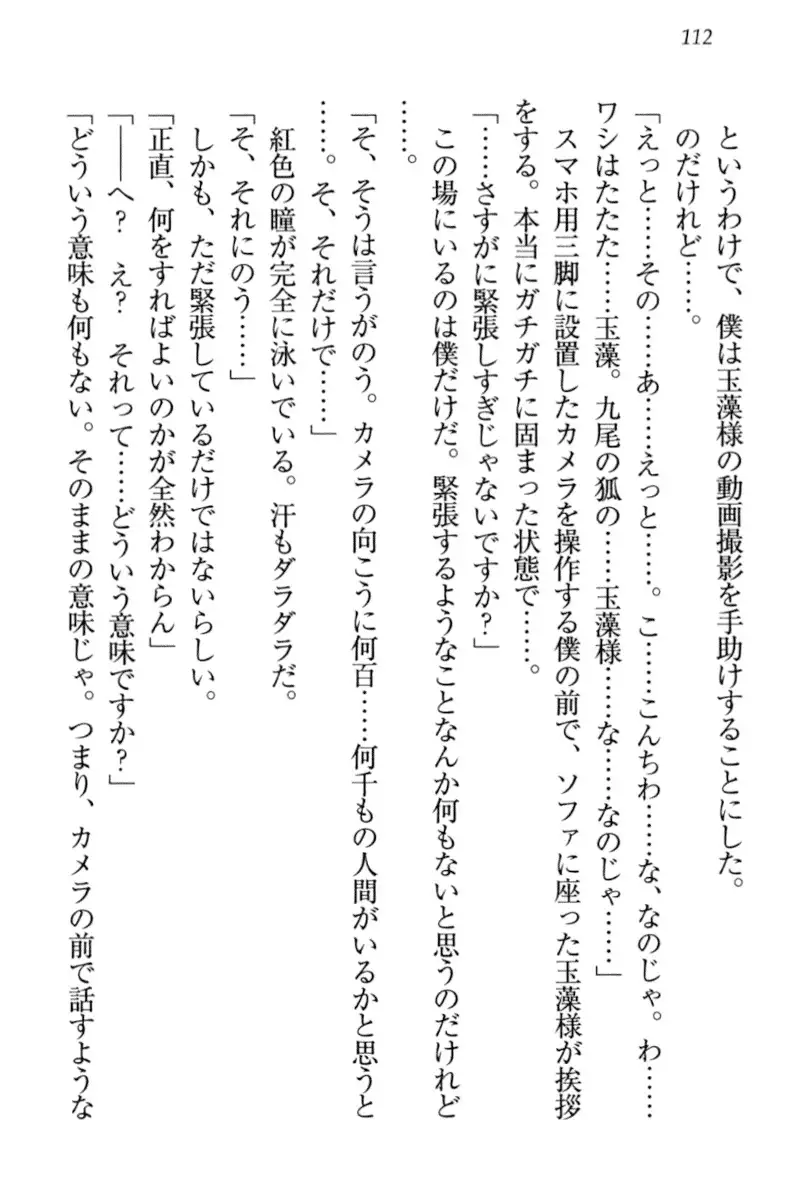 112
というわけで、僕は玉藻様の動画撮影を手助けすることにした。
のだけれど……。
「えっと……その……あ……えっと……。こ……こんちわ……な、なのじゃ。わ……
ワシはたたた……玉藻。九尾の狐の……玉藻様……な……なのじゃ……」
スマホ用三脚に設置したカメラを操作する僕の前で、ソファに座った玉藻様が挨拶
をする。本当にガチガチに固まった状態で……。
「……さすがに緊張しすぎじゃないですか？」
この場にいるのは僕だけだ。緊張するようなことなんか何もないと思うのだけれど
……。
「そ、そうは言うがのう。カメラの向こうに何百……何千もの人間がいるかと思うと
……。そ、それだけで……」
紅色の瞳が完全に泳いでいる。汗もダラダラだ。
「そ、それにのう……」
しかも、ただ緊張しているだけではないらしい。
「正直、何をすればよいのかが全然わからん」
「――へ？　え？　それって……どういう意味ですか？」
「どういう意味も何もない。そのままの意味じゃ。つまり、カメラの前で話すような